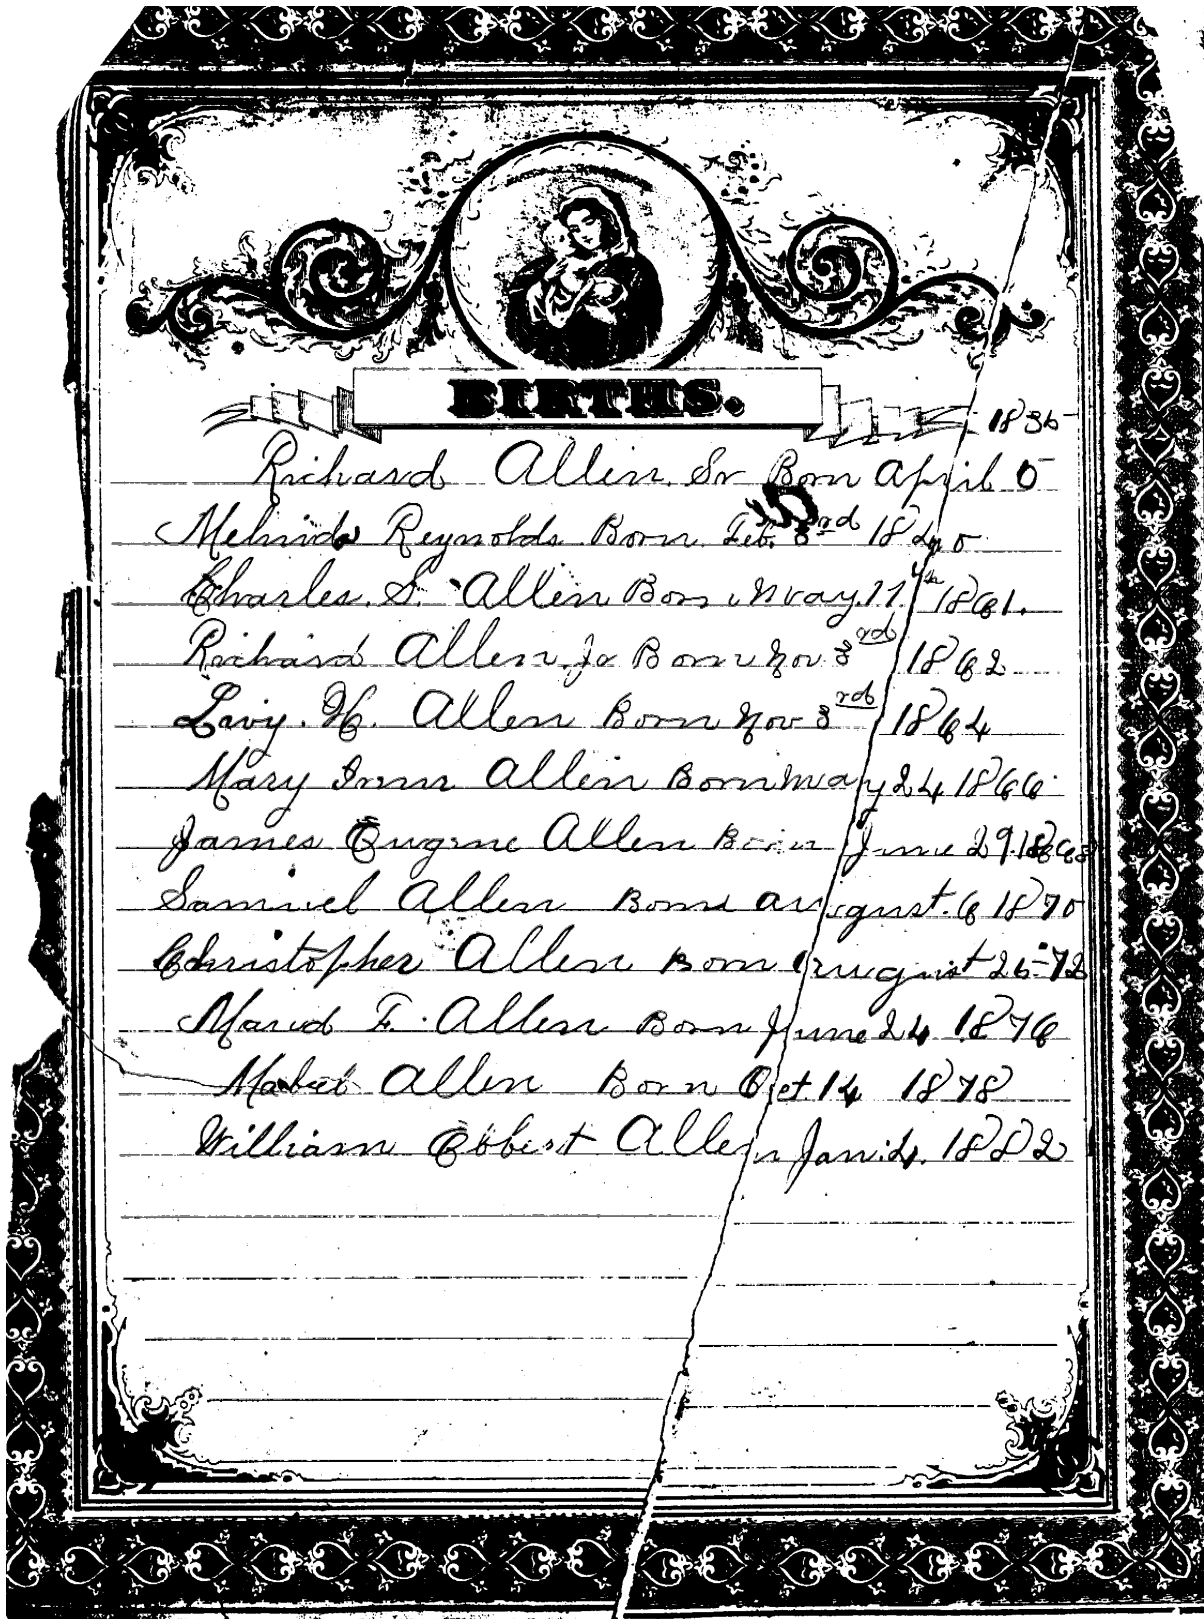 BIRTHS.
1835
Richard Allen. Sr Born April 5
Melnida Reynolds Born. Feb. 3rd 1840
Charles. S. Allen Born May. 11th 1861.
Richard Allen. Jr Born Nov 3rd 1862
Levy. H. Allen Born Nov 3rd 1864
Mary Allen Born May 24 1866
James Eugene Allen Born June 29. 1868
Samuel Allen Born August. 6 1870
Christopher Allen Born August 25-72
F. Allen Born June 24 1876
Mabel Allen Born Oct. 14 1878
William Egbert Allen Jan. 4. 1882